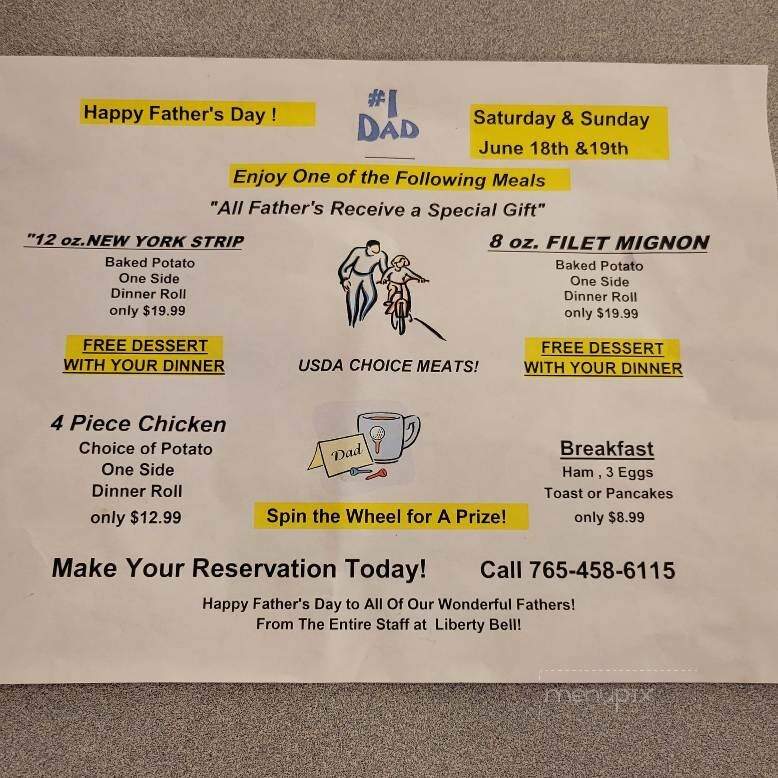 Happy Father's Day !
#1
DAD
Saturday & Sunday
June 18th &19th
Enjoy One of the Following Meals
"All Father's Receive a Special Gift"
"12 oz.NEW YORK STRIP
Baked Potato
One Side
Dinner Roll
only $19.99
FREE DESSERT
WITH YOUR DINNER
8 oz. FILET MIGNON
Baked Potato
One Side
Dinner Roll
only $19.99
FREE DESSERT
WITH YOUR DINNER
USDA CHOICE MEATS!
4 Piece Chicken
Choice of Potato
One Side
Dinner Roll
only $12.99
Dad
Spin the Wheel for A Prize!
Breakfast
Ham , 3 Eggs
Toast or Pancakes
only $8.99
Make Your Reservation Today!
Call 765-458-6115
Happy Father's Day to All Of Our Wonderful Fathers!
From The Entire Staff at Liberty Bell!
menupix